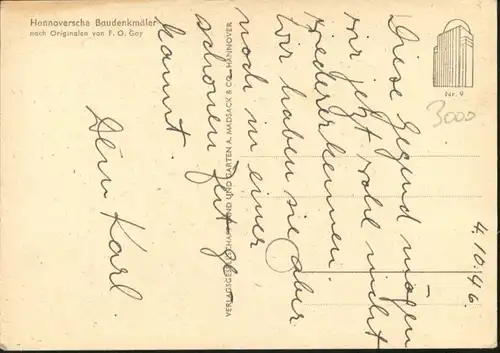 Hannoversche Baudenkmäler
nach Originalen von F. O. Gay
Nr. 9
3000
VERLAGSGESELLSCHAFT UND GARTEN A. MADSACK & CO., HANNOVER
4.10.46.
Diese Gegend mögen
wir jetzt wohl nicht
wiedererkennen.
Wir haben sie aber
noch in einer
schönen Zeit ge-
kannt.
Dein Karl.